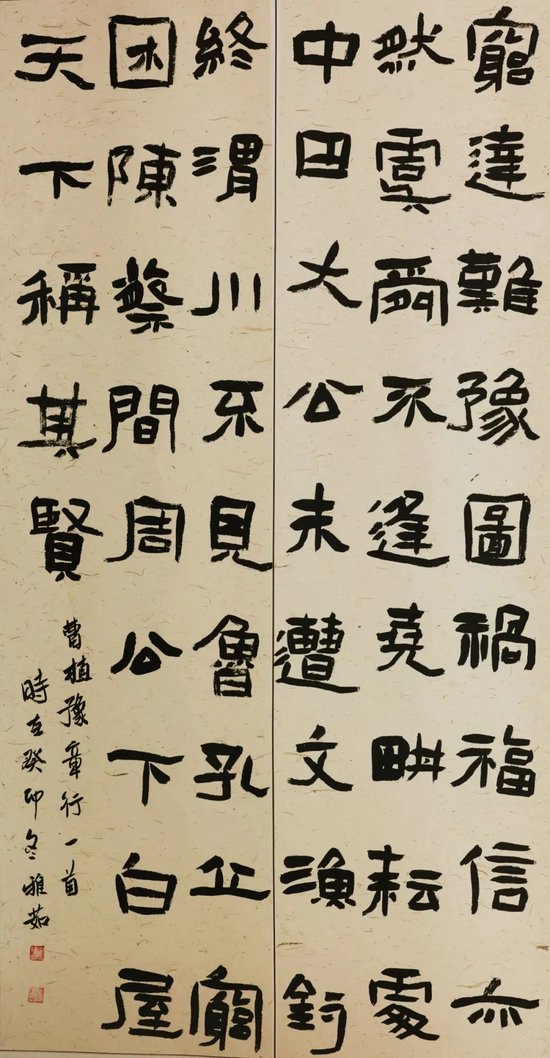 窮達難豫圖禍福信亦
然虞舜不逢堯畊耘處
中田大公未遭文漁釣
終渭川不見魯孔丘窮
困陳蔡間周公下白屋
天下稱其賢
曹植豫章行一首
時在癸卯冬雅茹